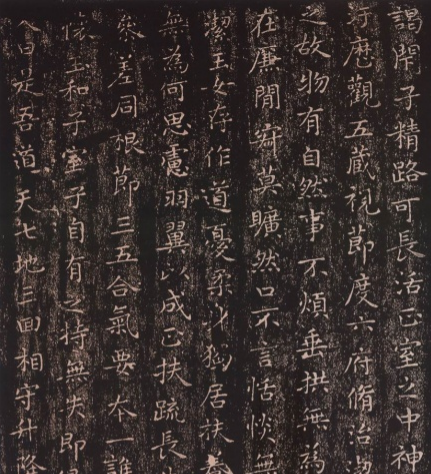 謂閇子精路可長活正室之中神
歷觀五藏視節度六府脩治
之故物有自然事不煩垂拱無為
在廉間寂莫曠然口不言恬惔無
潔玉女存作道憂柔身獨居扶養
無為何思慮羽翼以成正扶疏長
參差同根節三五合氣要本一誰
懷玉和子室子自有之持無失即
入日是吾道天七地三回相守升降